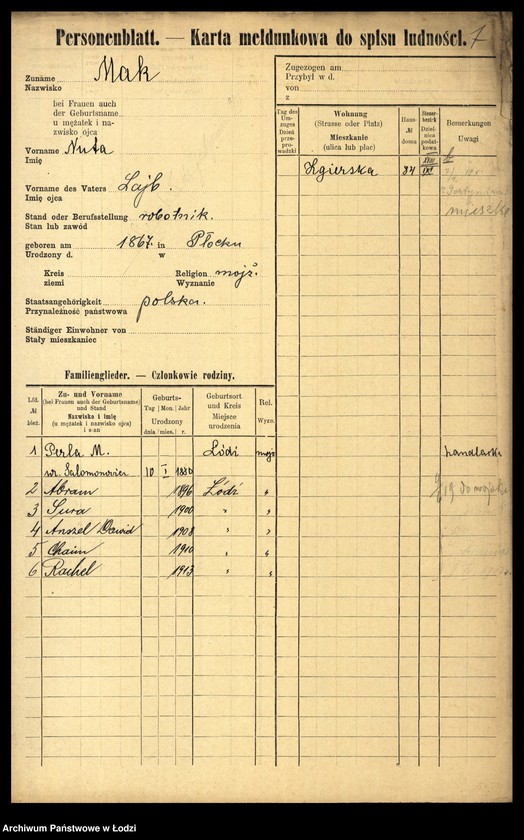 Personenblatt. — Karta meldunkowa do spisu ludności. 7
Zuname Mak
Nazwisko
bei Frauen auch
der Geburtsname
u mężatek i na-
zwisko ojca
Vorname Nuta
Imię
Vorname des Vaters Lajb.
Imię ojca
Stand oder Berufsstellung robotnik.
Stan lub zawód
geboren am 1867. in Płocku
Urodzony d. w
Kreis Religion mojż.
ziemi Wyznanie
Staatsangehörigkeit polska.
Przynależność państwowa
Ständiger Einwohner von
Stały mieszkaniec
Zugezogen am
Przybył w d.
von
z
Tag des Um-zuges Dzień prze-prowadzki
Wohnung
(Strasse oder Platz)
Mieszkanie
(ulica lub plac)
Haus-
№
domu
Steuer-bezirk Dzielnica podat-kowa
Bemerkungen
Uwagi
Zgierska 34 XVIII
IXI
mieszk
Familienglieder. — Członkowie rodziny.
Lfd.
№
bież.
Zu- und Vorname
(bei Frauen auch der Geburtsname)
und Stand
Nazwisko i imię
(u mężatek i nazwisko ojca)
i stan
Geburts-
Tag Mon. Jahr
Urodzony
dnia mies. r.
Geburtsort
und Kreis
Miejsce
urodzenia
Rel.
Wyzn.
1 Perla M. Łódź mojż handlarka
ur. Salomonowicz 10 I 1880
2 Abram 1896 Łódź „
3 Sura 1900 „ „
4 Anszel Dawid 1908 „ „
5 Chaim 1910 „ „
6 Rachel 1913 „ „
Archiwum Państwowe w Łodzi